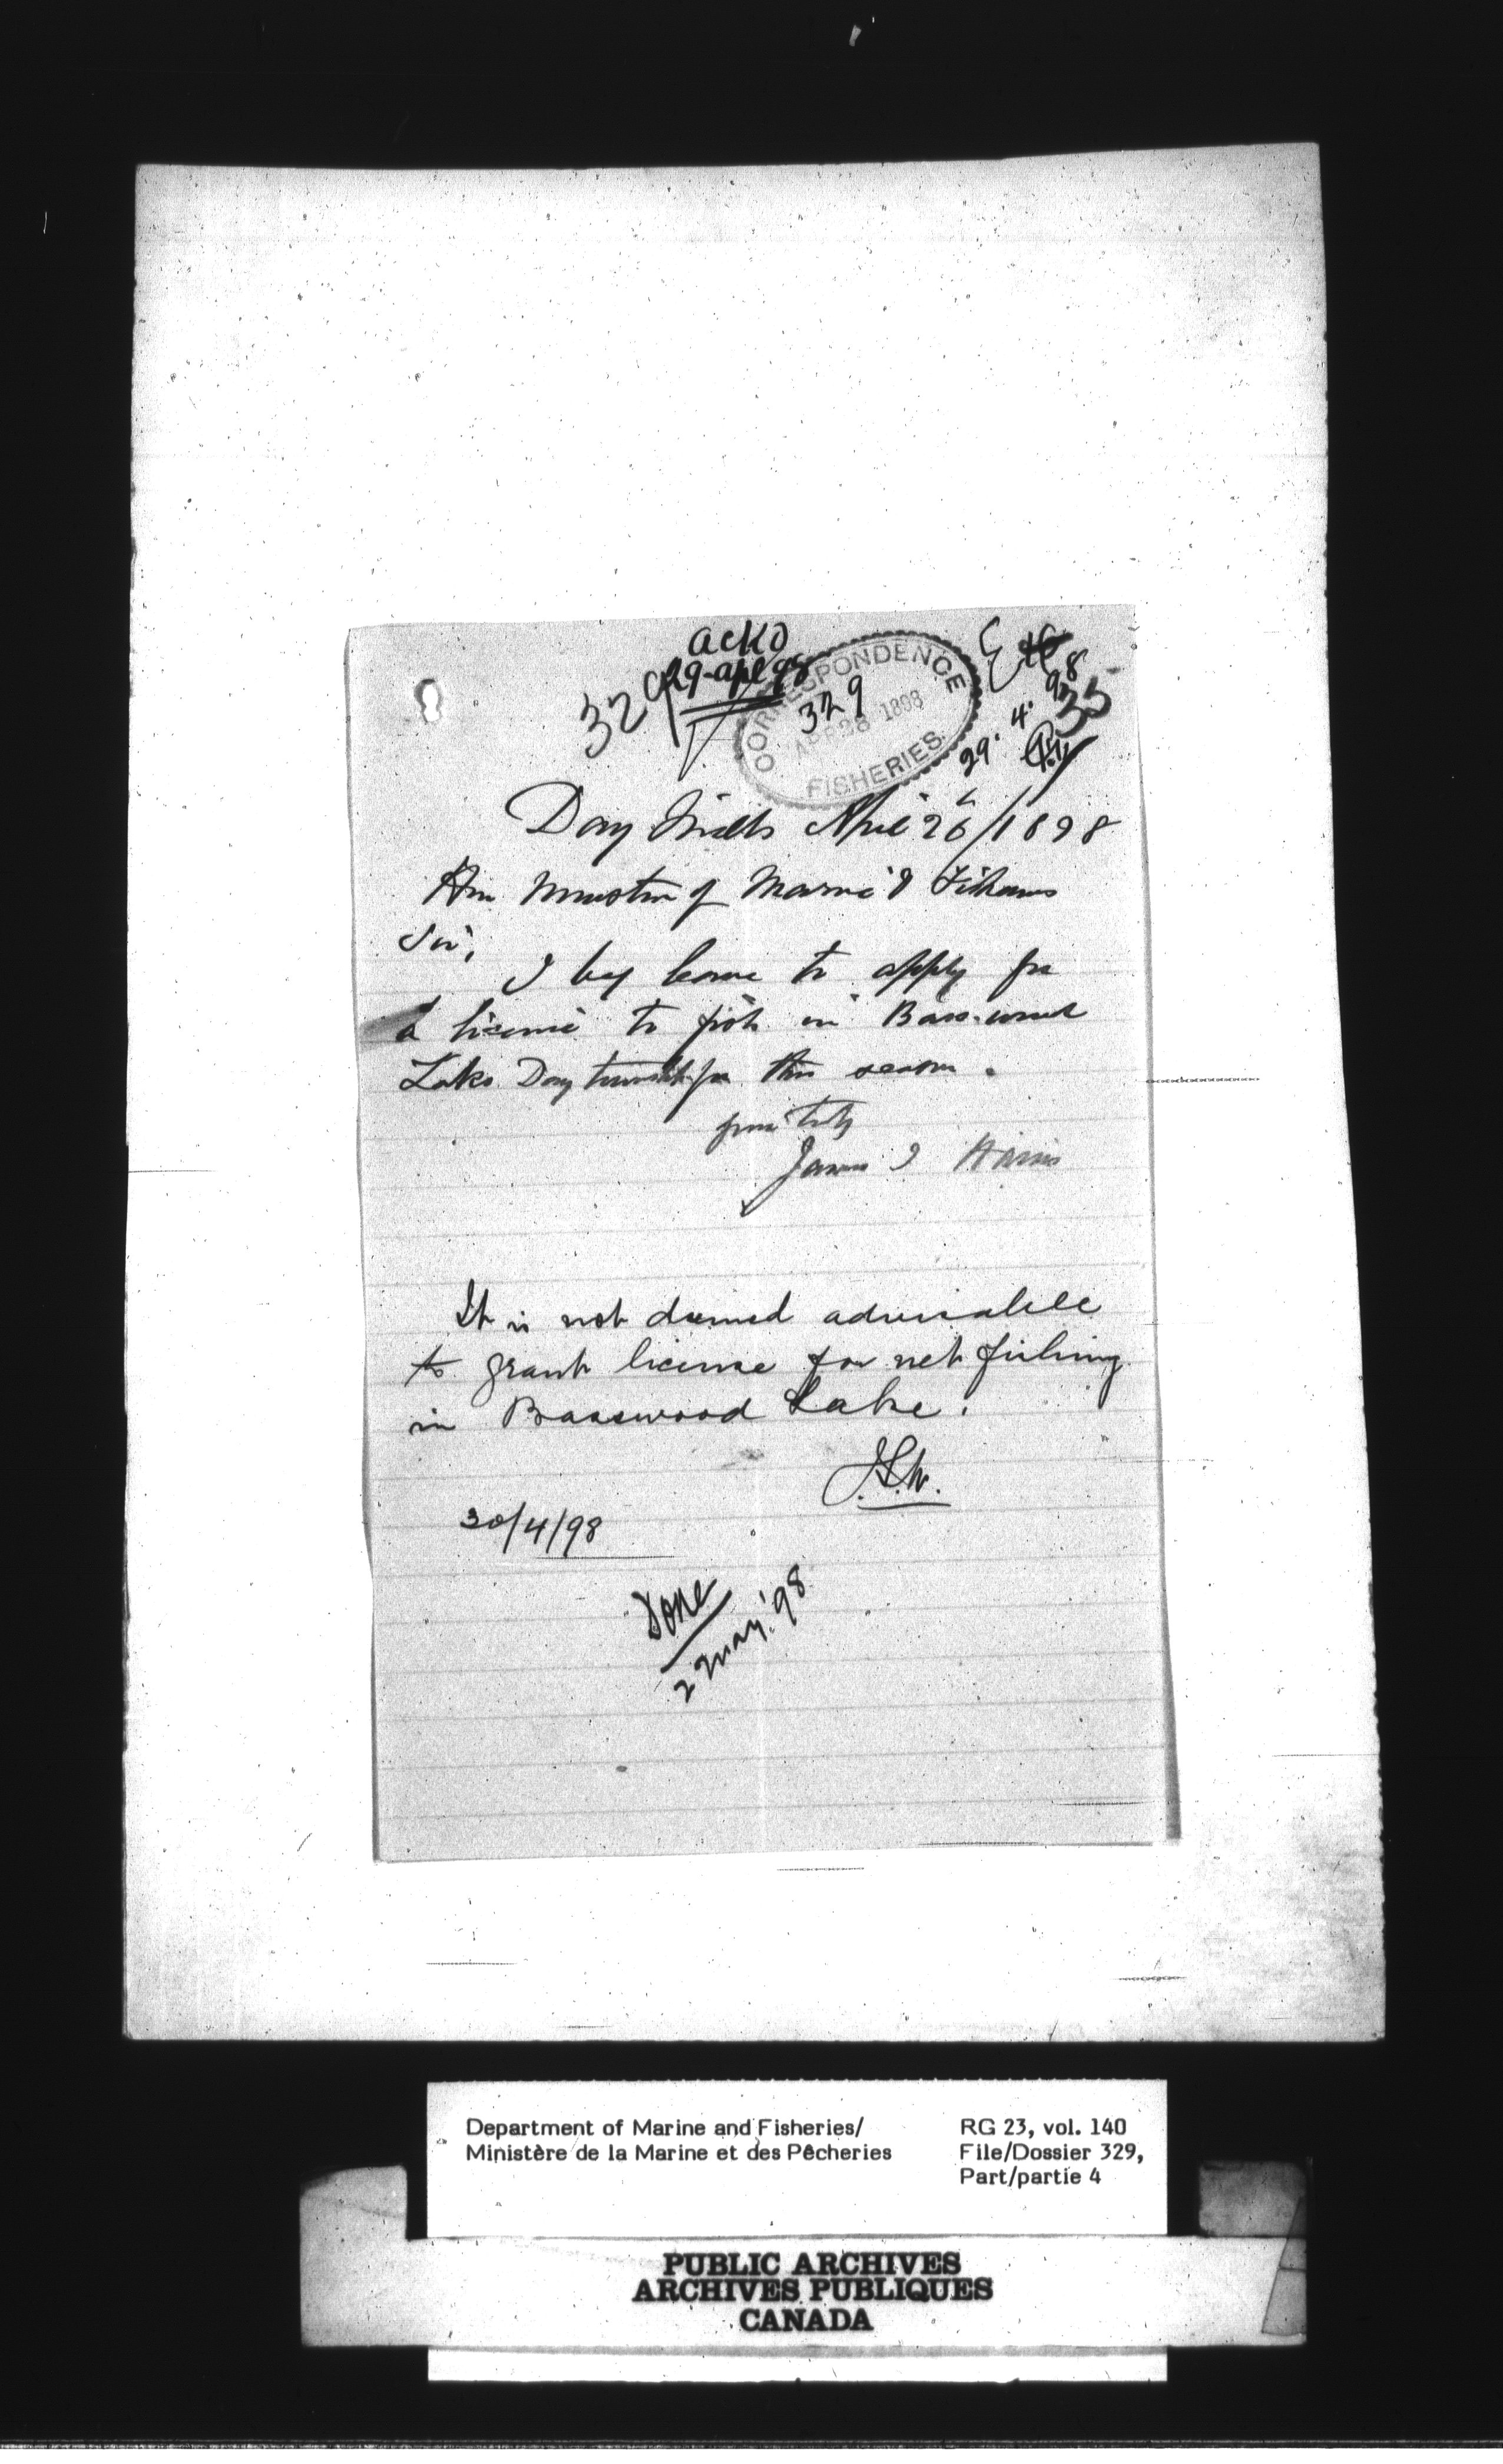 ackd
29-apl 98
329
CORRESPONDENCE
329
APR 28 1898
FISHERIES
29. 4. 98
35
Day Mills April 26/1898
Hon Minister of Marine & Fisheries
Sir,
I beg leave to apply for
a license to fish in Basswood
Lake Day township for this season.
yours truly
James I Harris
It is not deemed advisable
to grant license for net fishing
in Basswood Lake.
30/4/98
Done
2 May '98
Department of Marine and Fisheries/
Ministère de la Marine et des Pêcheries
RG 23, vol. 140
File/Dossier 329,
Part/partie 4
PUBLIC ARCHIVES
ARCHIVES PUBLIQUES
CANADA